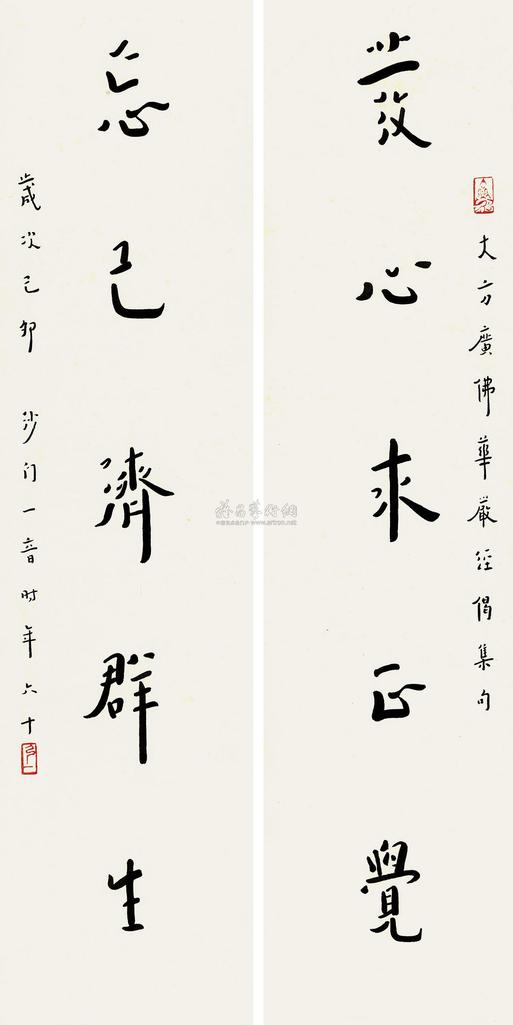 大方廣佛華嚴經偈集句
發心求正覺
忘己濟群生
歲次己卯 沙门一音时年六十